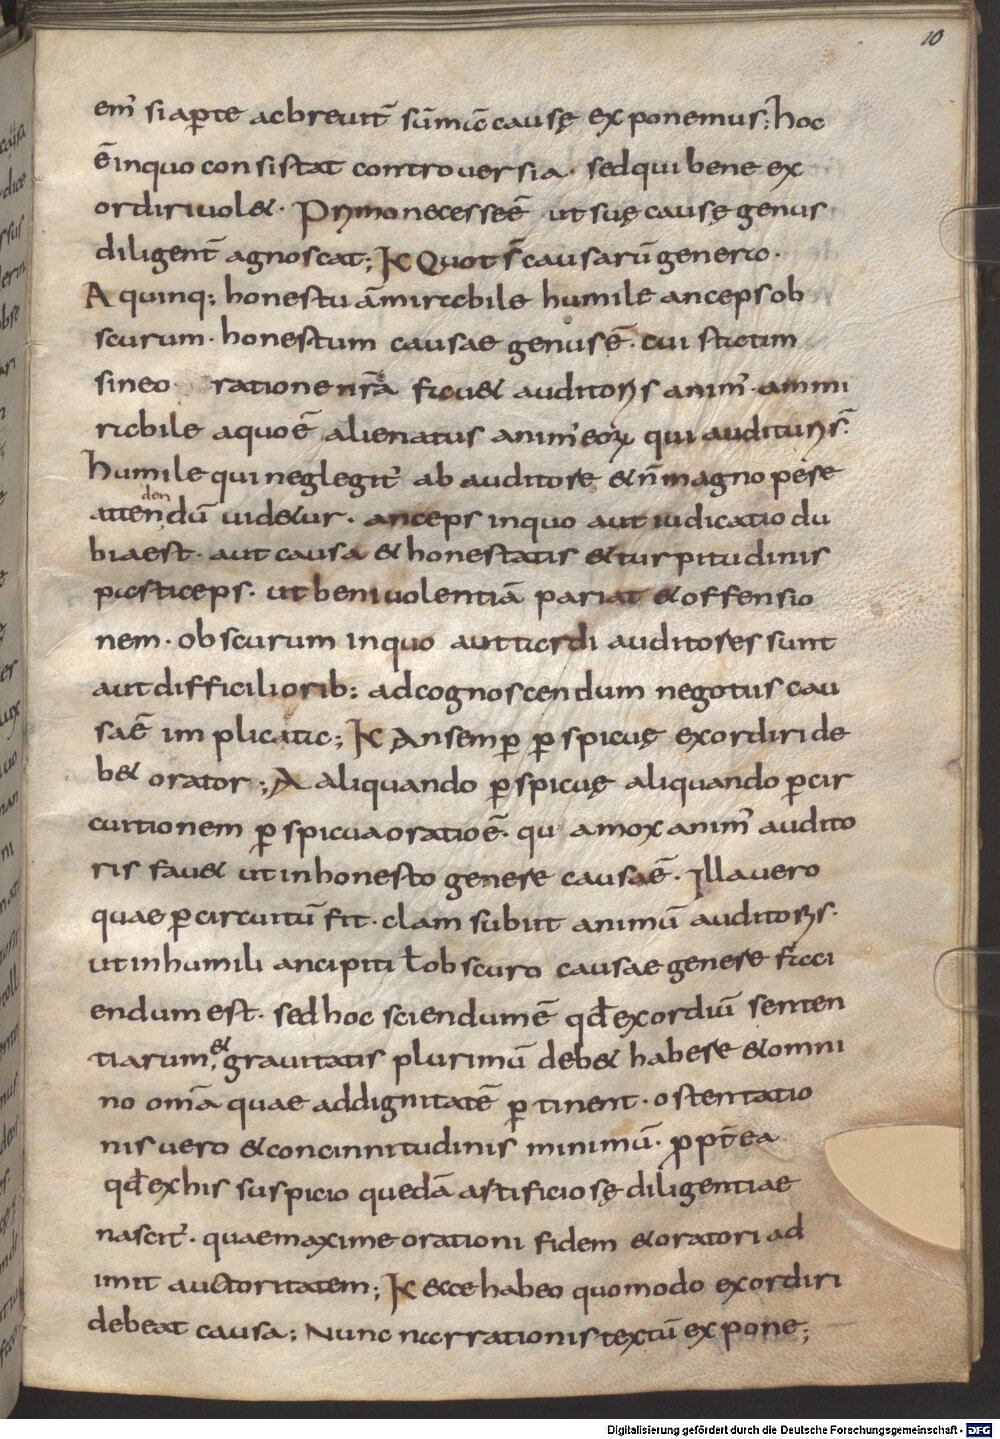 10
em̄ si aꝑte ac breuit̄ sūmā causę exponemus; hoc
ē in quo consistat controuersia· sed qui bene ex
ordiri uol&· Primo necesse ē ut suę causę genus
diligent̄ agnoscat; K Quot s̄ causarū genera·
A quinq; honestū ām̄irabile humile anceps ob
scurum· honestum causae genus ē· cui statim
sine o ratione nr̄a fau& auditoris anim̄· ammi
rabile a quo ē alienatus anim̄ eoꝝ qui audituri s̄·
humile qui neglegit̄ ab auditore & n̄ magno pere
attendendū uid&ur· anceps in quo aut iudicatio du
bia est· aut causa & honestatis & turpitudinis
particeps· ut beniuolentiā pariat & offensio
nem· obscurum in quo aut tardi auditores sunt
aut difficilioribꝫ ad cognoscendum negotiis cau
sa ē implicata; K An semꝑ ꝑspicuę exordiri de
b& orator; A aliquando ꝑspicuę aliquando ꝑ cir
cuitionem ꝑspicua oratio ē· qua mox anim̄ audito
ris fau& ut in honesto genere causa ē· Illa uero
quae ꝑ circuitū fit· clam subiit animū auditoris·
ut in humili ancipiti ł obscuro causae genere faci
endum est· sed hoc sciendum ē qđ exordiū senten
tiarum & grauitatis plurimū deb& habere & omni
no om̄a quae ad dignitatē ꝑtinent· ostentatio
nis uero & concinnitudinis minimū· ꝓpt̄ea
qđ ex his suspicio quedā artificiosę diligentiae
nascit̄· quae maxime orationi fidem & oratori ad
imit auctoritatem; K Ecce habeo quomodo exordiri
debeat causa; Nunc narrationis textū expone;
Digitalisierung gefördert durch die Deutsche Forschungsgemeinschaft - DFG